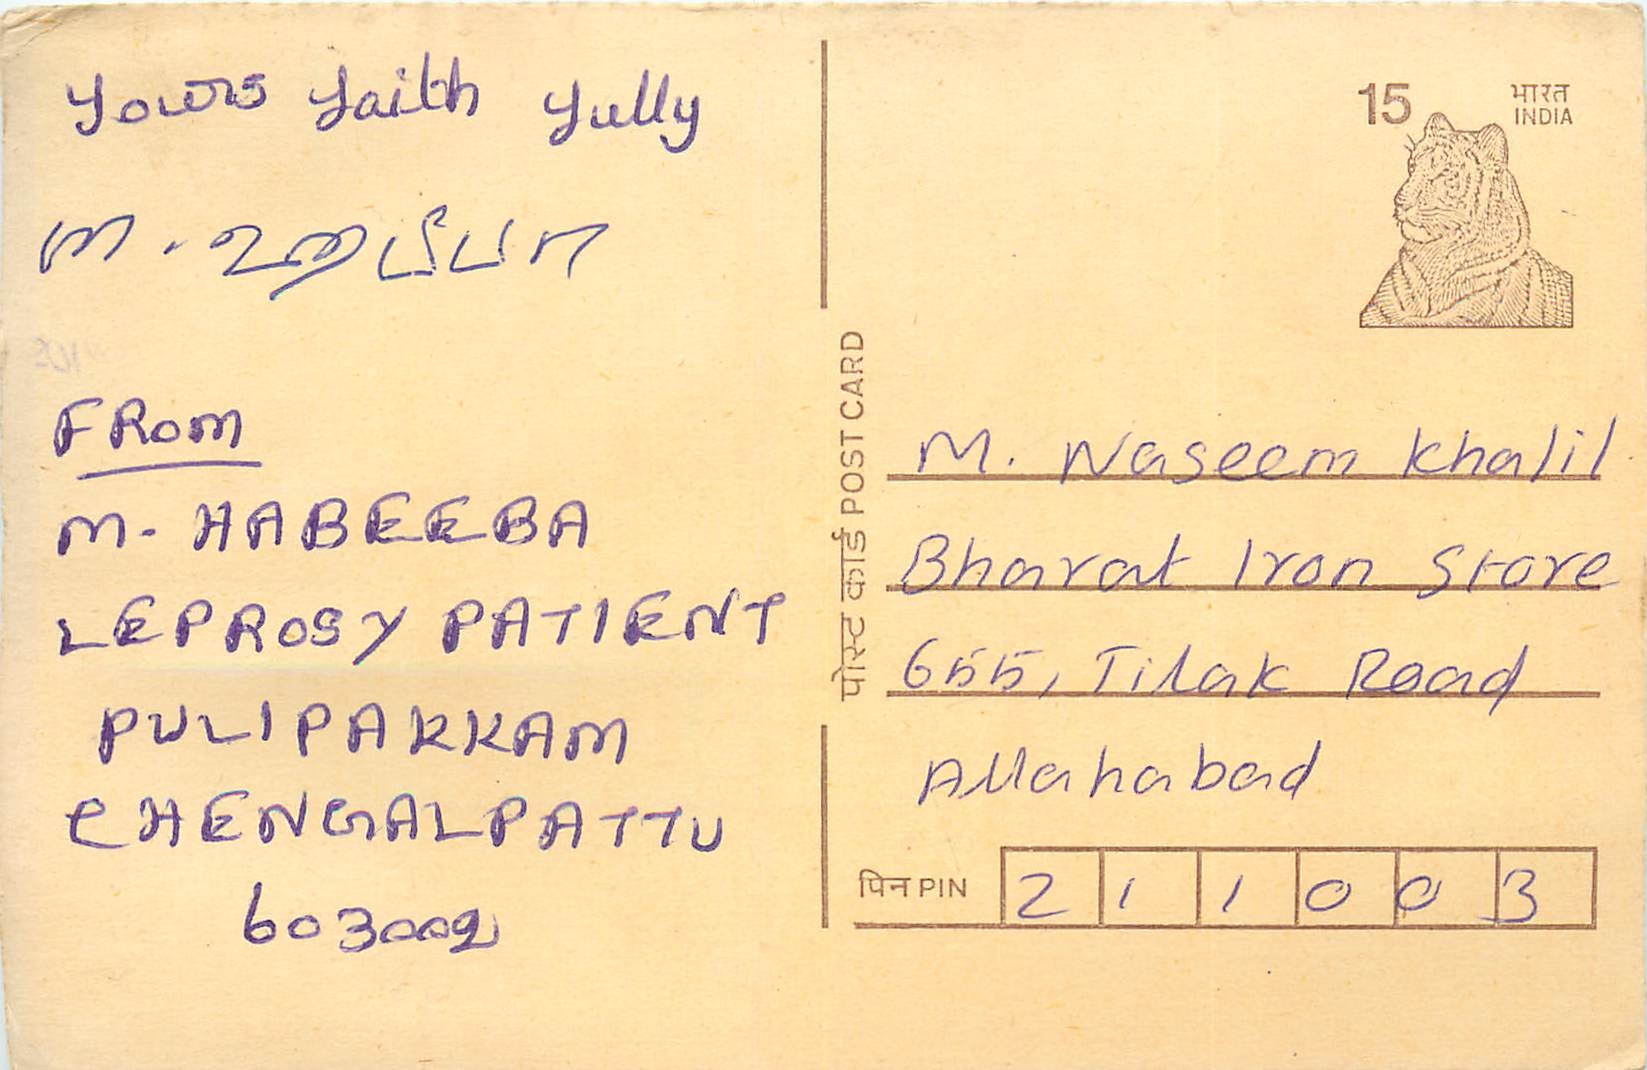 Yours faith fully
 м. ஹபீபா
FROM
M. HABEEBA
LEPROSY PATIENT
PULIPAKKAM
CHENGALPATTU
603002
पोस्ट कार्ड POST CARD
15
भारत
INDIA
M. Naseem Khalil
Bharat Iron Store
655, Tilak Road
Allahabad
पिन PIN 211003